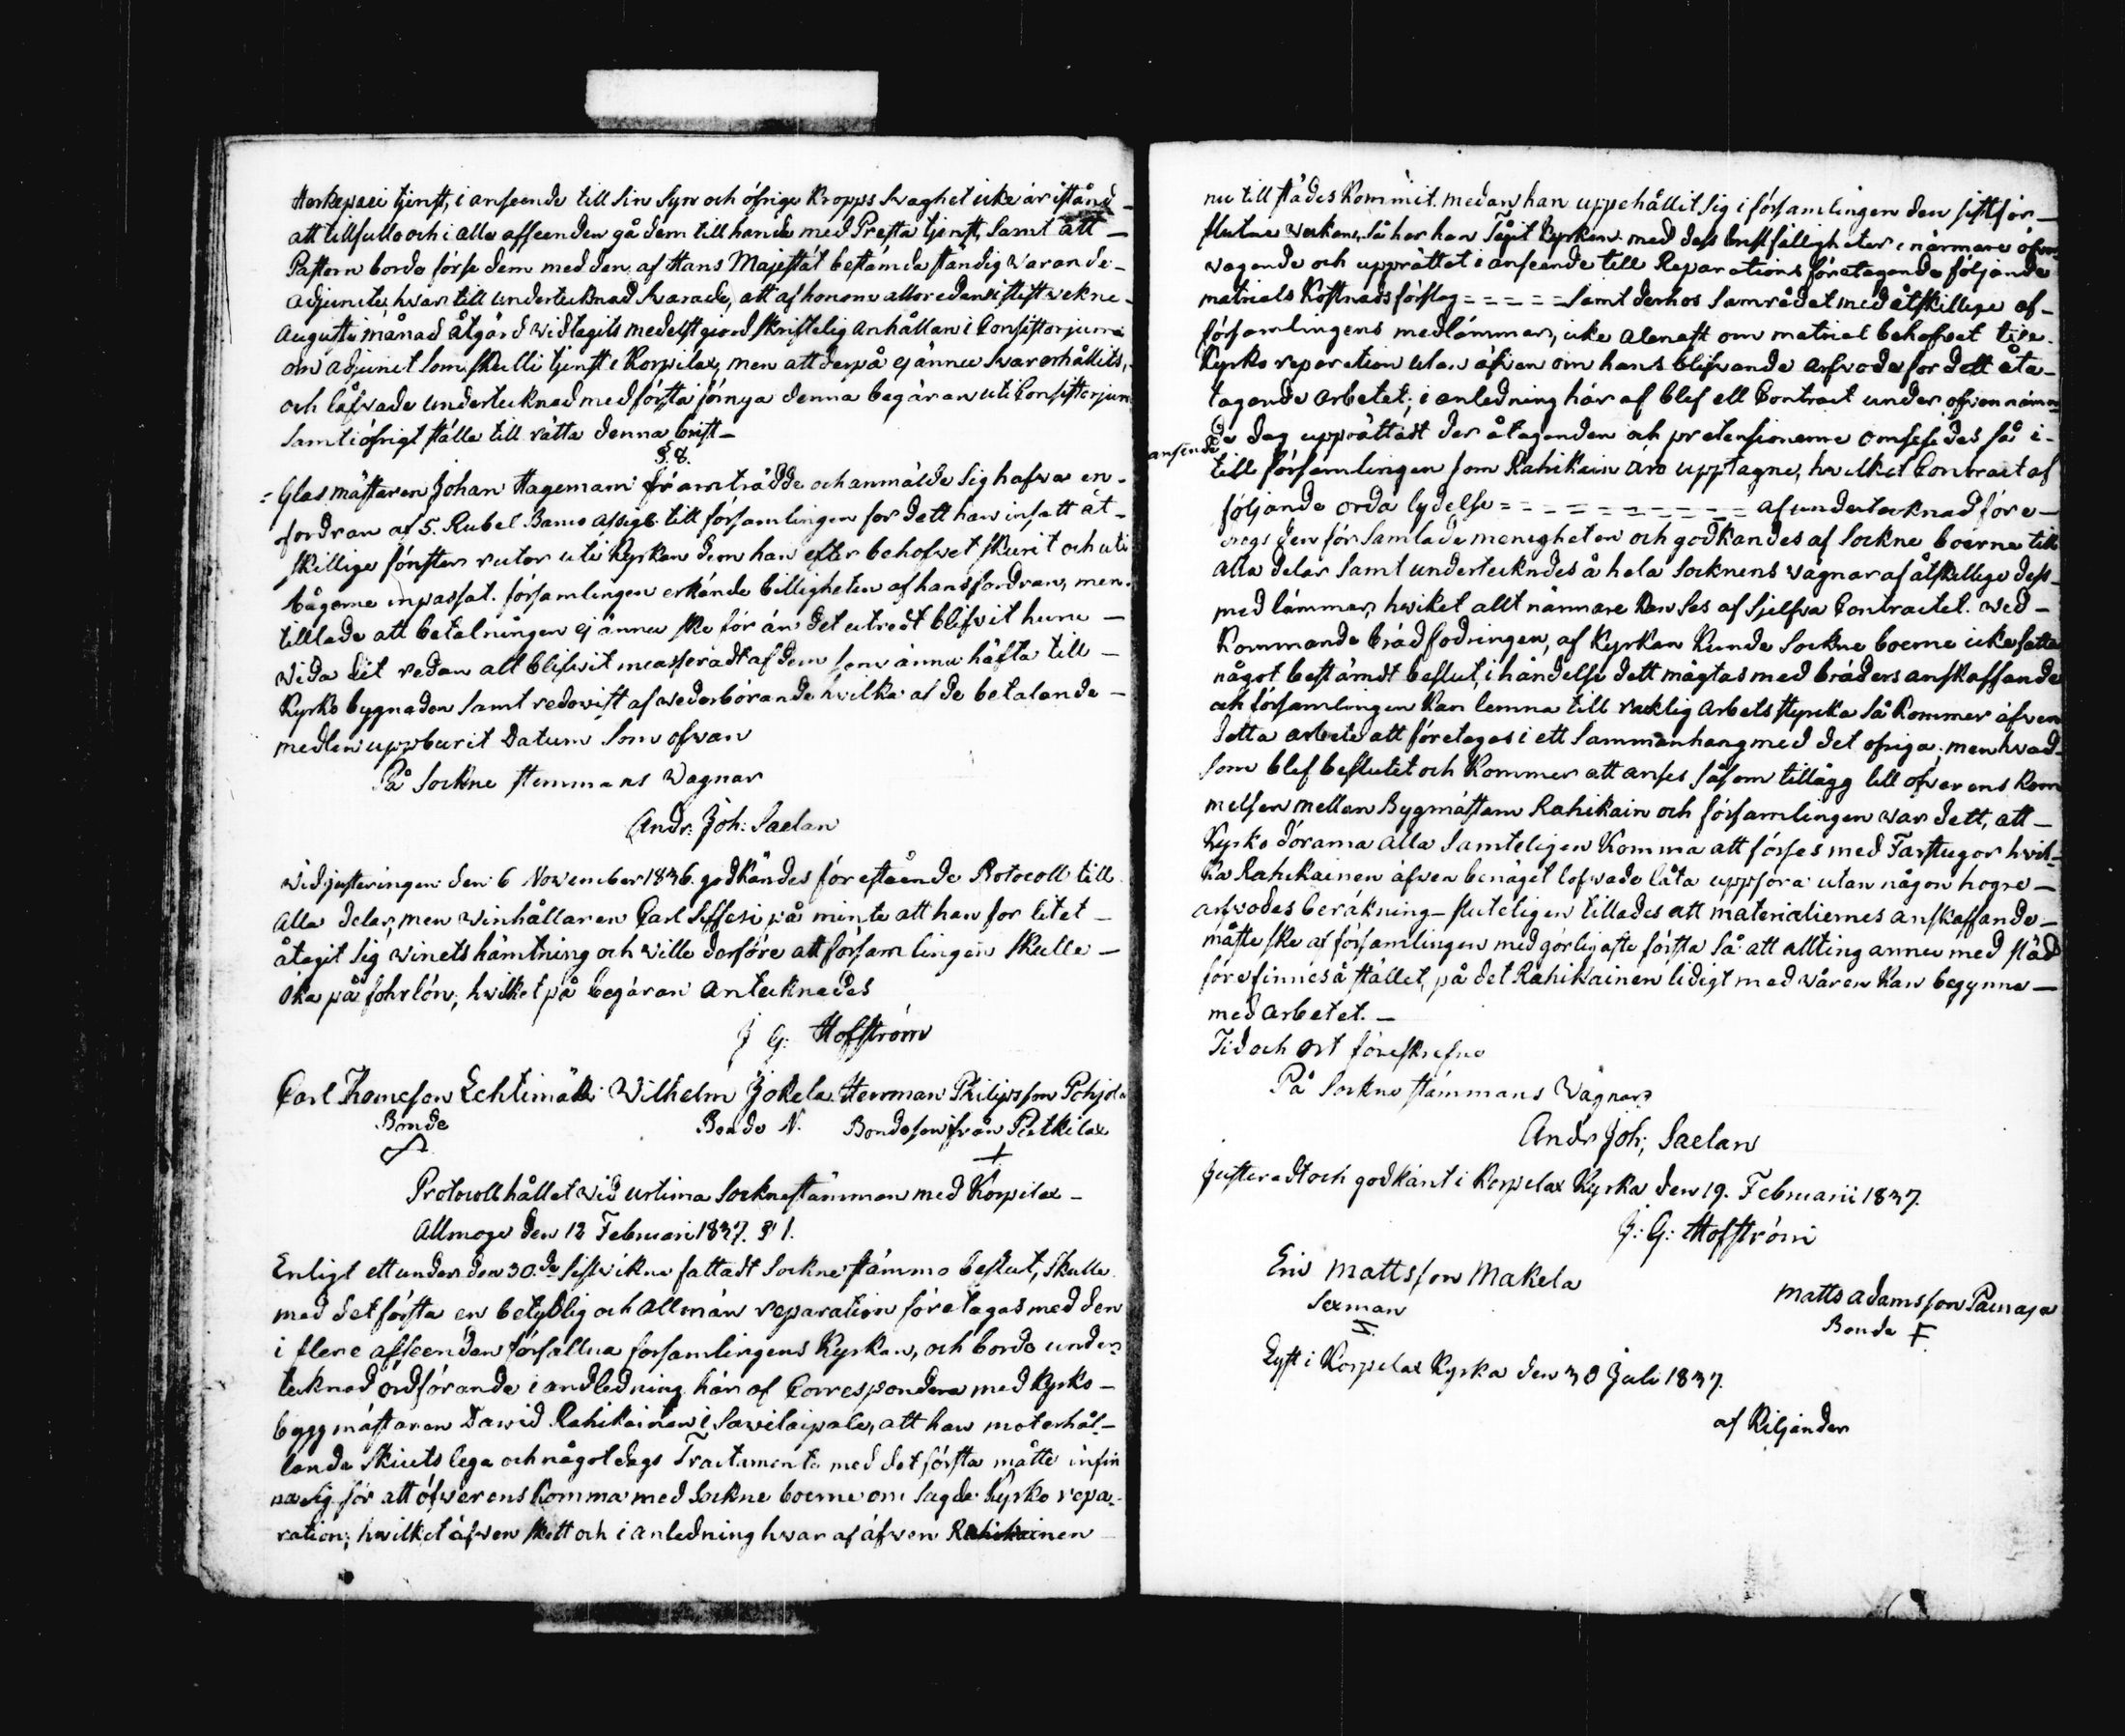 tienst, i anseende till Sin Syn och öfrige Kropps Svaghet icke är istånd
att tillfullo och i alla afseenden gå dem till hande med Presta tjenst, Samt att
Pastorn borde förse dem med den af Hans Majestät bestämde ständig varande
Adjuncte, hvar till undertecknad Svarade, att af honom alloredan sistlist vekne
Augusti månad åtgärd vidtagits medelst giord skriftelig anhållan i Consistorjum
om adjunct som skulle tjenst i Korpilax, men att derpå ej ännu Svar erhållits,
och låfvade undertecknad med första förnya denna begäran uti Consistorjum
Samt i öfrigt ställa till rätta denna brist
§. 8.
Glas mästaren Johan Hagemam framträdde och anmälde Sig hafva en
fordran af 5. Rubel Banco Assign till församlingen for dett han insatt åt
skillige fönster rutor uti Kyrkan dem han efter behofvet skurit och uti
bågorne inpassat. församlingen erkände billigheten af hans fordran, men
tillade att betalningen ej ännu ske för än det utredt blifvit huru
vida dit redan alt blifvit inasseradt af dem som ännu häfta till
Kyrko bygnaden Samt redovist af vederbörande hvilka af de betalande
medlen uppburit Datum Som ofvan
På Sockne stemmans Vägnar
Andr: Joh: Saelan
Vid justeringen den 6 November 1836. godkändes förestående Protocoll till
alla delar, men Vinhållaren Carl Siffesi påminte att han for litet
åtagit Sig vinets hämtning och ville derföre att församlingen skulle
öka på fohrlön; hvilket på begäran antecknades
J G: Hofström
Carl Thomesson Lehtimäki Wilhelm Jokela Herrman Philipsson Pohjola
Bonde Bonde N. Bondeson från Putkilax
Protocoll hållet vid urtima Socknestämman med Korpilax
Allmoge den 12 Februari 1837. § 1.
Enligt ett under den 30.de Sistvikne fattadt Sockne stämmo beslut, skulle
med det första en betydlig och allmän reparation företagas med den
i flere afseenden förfallna församlingens Kyrkan, och borde under
tecknad ordförande i andledning här af Correspondera med Kyrko
bygg mästaren David Rahikainen i Savitaipale, att han mot erhål
lande skiuts lega och något dags Tractamente med det första måtte infin
na Sig för att öfverens komma med Sockne boerne om Sagde Kyrko repa
ration; hvilket äfven skett och i anledning hvar af äfven Rahikainen
nu till städes Kommit. medan han uppehållit Sig i församlingen den sistför
flutne veckan, Så har han Tagit Kyrkan med dess bristfälligheter i närmare öfver
vägande och upprättat i anseende till Reparations företagande följande
matrials Kostnadsförslag = = = = = Samt derhos Samrådet med åtskillige af
församlingens medlämmar, icke alenast om matrial behofvet till
Kyrko reparation utan äfven om hans blifvande arfvode for dett åta
tagande arbetet; i anledning här af blef ett Contract under ofvannämn
de dag upprättást der åtaganden och pretensionerne omsesedes så i
ansende
till församlingen som Rahikain äro upptagne, hvilket Contract af
följande orda lydelse = = = = = = = = = af undertecknad före
drogs den för Samlade menigheten och godkändes af Sockne boerne till
alla delar Samt underteckndes å hela Socknens vägnar af åtskillige dess
med lämmar, hviket allt närmare kan Ses af Sjelfva Contractet. Ved
Kommande brädfodringen, af Kyrkan Kunde Sockne boerne icke fatta
något bestämdt beslut, i händelse dett mägtas med bräders anskaffande
och församlingen Kan lemna till räcklig arbets styrcka Så Kommer äfven
detta arbete att företagas i ett Sammanhang med det öfriga; men hvad
Som blef beslutit och Kommer att anses Såsom tillägg till öfverens kom
melsen mellan Bygmästarn Rahikain och församlingen var dett, att
Kyrko dörarna alla Samteligen Komma att förses med Farstugor hvil
ka Rahikainen äfven benäget lofvade låta uppföra utan någon högre
arfvodes beräkning – sluteligen tillades att materialiernes anskaffande
måste ske af församlingen med görligaste första så att allting annu med släd
före finnes å stället, på det Rahikainen lidigt med våren Kan begynna
med arbetet.
Tid och Ort föreskrefne
På Sockne stämmans Vägnar
Andr Joh; Saelan
Justeradt och godkänt i Korpelax Kyrka den 19. Februarii 1837.
J: G: Hofström
Eric Mattsson Makela
Sexman
Matts Adamsson Paunaja
Bonde
Lyst i Korpelax Kyrka den 30 Juli 1837.
af Kiljander